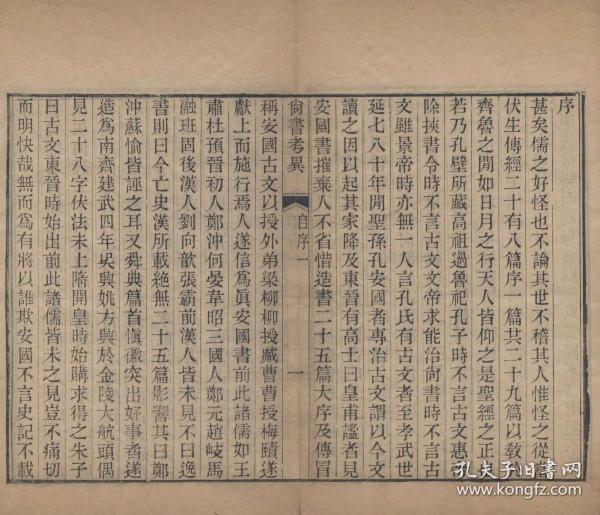 序
甚矣儒之好怪也不論其世不稽其人惟怪之從
伏生傳經二十有八篇序一篇共二十九篇以敎
齊魯之閒如日月之行天人皆仰之是聖經之正
若乃孔壁所藏高祖過魯祀孔子時不言古文惠
除挾書令時不言古文文帝求能治尙書時不言古
文雖景帝時亦無一人言孔氏有古文者至孝武世
延七八十年閒聖孫孔安國者專治古文謂以今文
讀之因以起其家降及東晉有高士曰皇甫謐者見
安國書摧棄人不省惜造書二十五篇大序及傳冒
尙書考異 自序一 一
稱安國古文以授外弟梁柳柳授臧曹曹授梅賾遂
獻上而施行焉人遂信爲眞安國書前此諸儒如王
肅杜預晉初人鄭沖何晏韋昭三國人鄭元趙岐馬
融班固後漢人劉向歆張霸前漢人皆未見不曰逸
書則曰今亡史漢所載絶無二十五篇影響其曰鄭
沖蘇愉皆誣之耳又舜典篇首愼徽突出好事者遂
造爲南齊建武四年吳興姚方興於金陵大航頭偶
見二十八字伏法未上隋開皇時始購求得之朱子
曰古文東晉時始出前此諸儒皆未之見豈不痛切
而明快哉無而爲有將以誰欺安國不言史記不載
孔夫子旧書网
www.kongfz.com